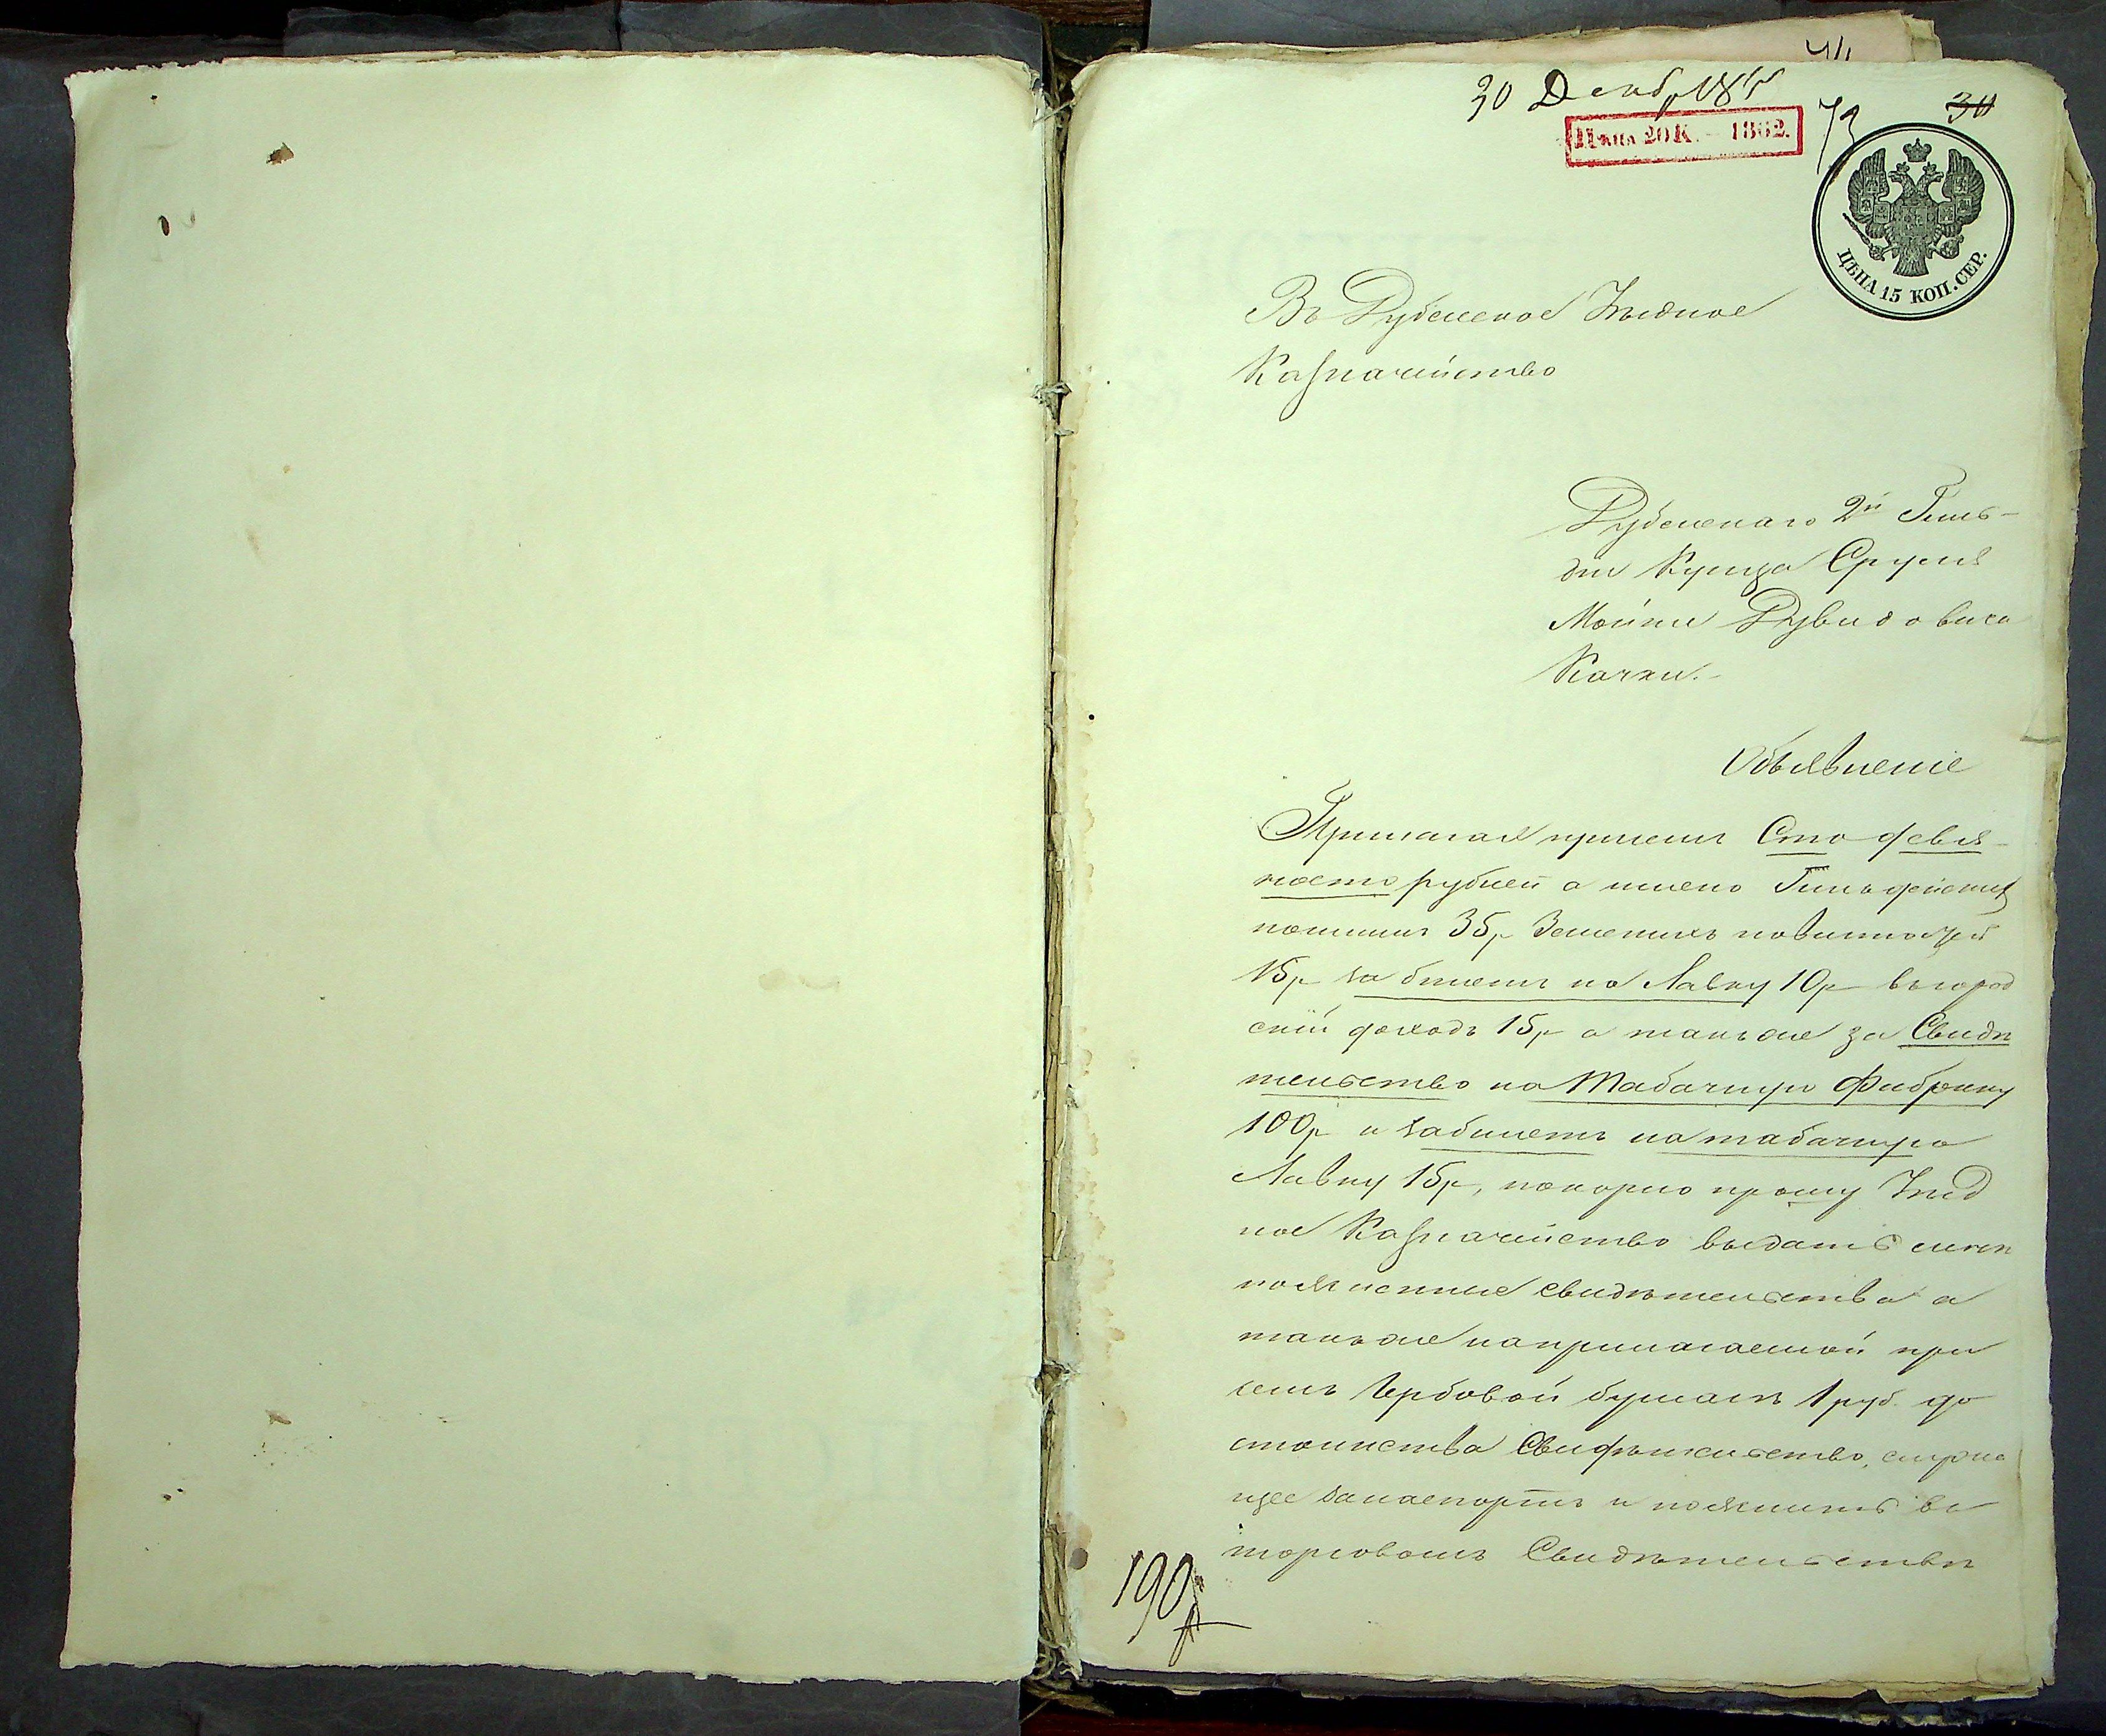 30 Декаб, 18
Цѣна 20 К. – 1862.
73
30
ЦѢНА 15 КОП. СЕР.
Въ Дубенское Уѣздное
Казначейство
Дубенскаго 2й Гиль-
діи Купца Сруля
Мойши Дувидовича
Качки.-
Объявленіе
Прилагая присемъ Сто девя-
носто рублей а имено Гильдейскихъ
пошлинъ 35р Земскихъ повиностей
15р за билетъ на Лавку 10р въ город
скій доходъ 15р а такъ же за Свидѣ
тельство на Табачную Фабрику
100р и за билетъ на табачную
Лавку 15р, покорно прошу Уѣзд
ное Казначейство выдать мнѣ
поясненные свидѣтельства а
такъ же на прилагаемой при
семъ Гербовой бумагѣ 1 руб. до
стоинства Свидѣтельство, служа
щее за паспортъ и пояснить въ
торговомъ Свидѣтельствѣ
190р